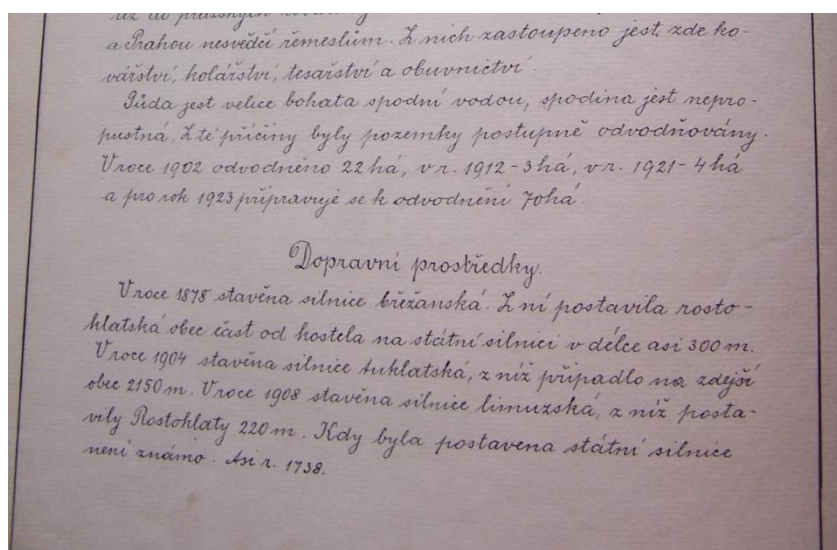 až do pražských
a Prahou nesvědčí řemeslům. Z nich zastoupeno jest, zde ko-
vářství, kolářství, tesařství a obuvnictví.
Půda jest velice bohata spodní vodou, spodina jest nepro-
pustná. Z té příčiny byly pozemky postupně odvodňovány.
V roce 1902 odvodněno 22 há, v r. 1912 - 3 há, v r. 1921 - 4 há
a pro rok 1923 připravuje se k odvodnění 70há.
Dopravní prostředky.
V roce 1878 stavěna silnice břežanská. Z ní postavila rosto-
klatská obec část od kostela na státní silnici v délce asi 300 m.
V roce 1904 stavěna silnice tuklatská, z níž připadlo na zdejší
obec 2150 m. V roce 1908 stavěna silnice limuzská, z níž posta-
vily Rostoklaty 220 m. Kdy byla postavena státní silnice
není známo. Asi r. 1738.